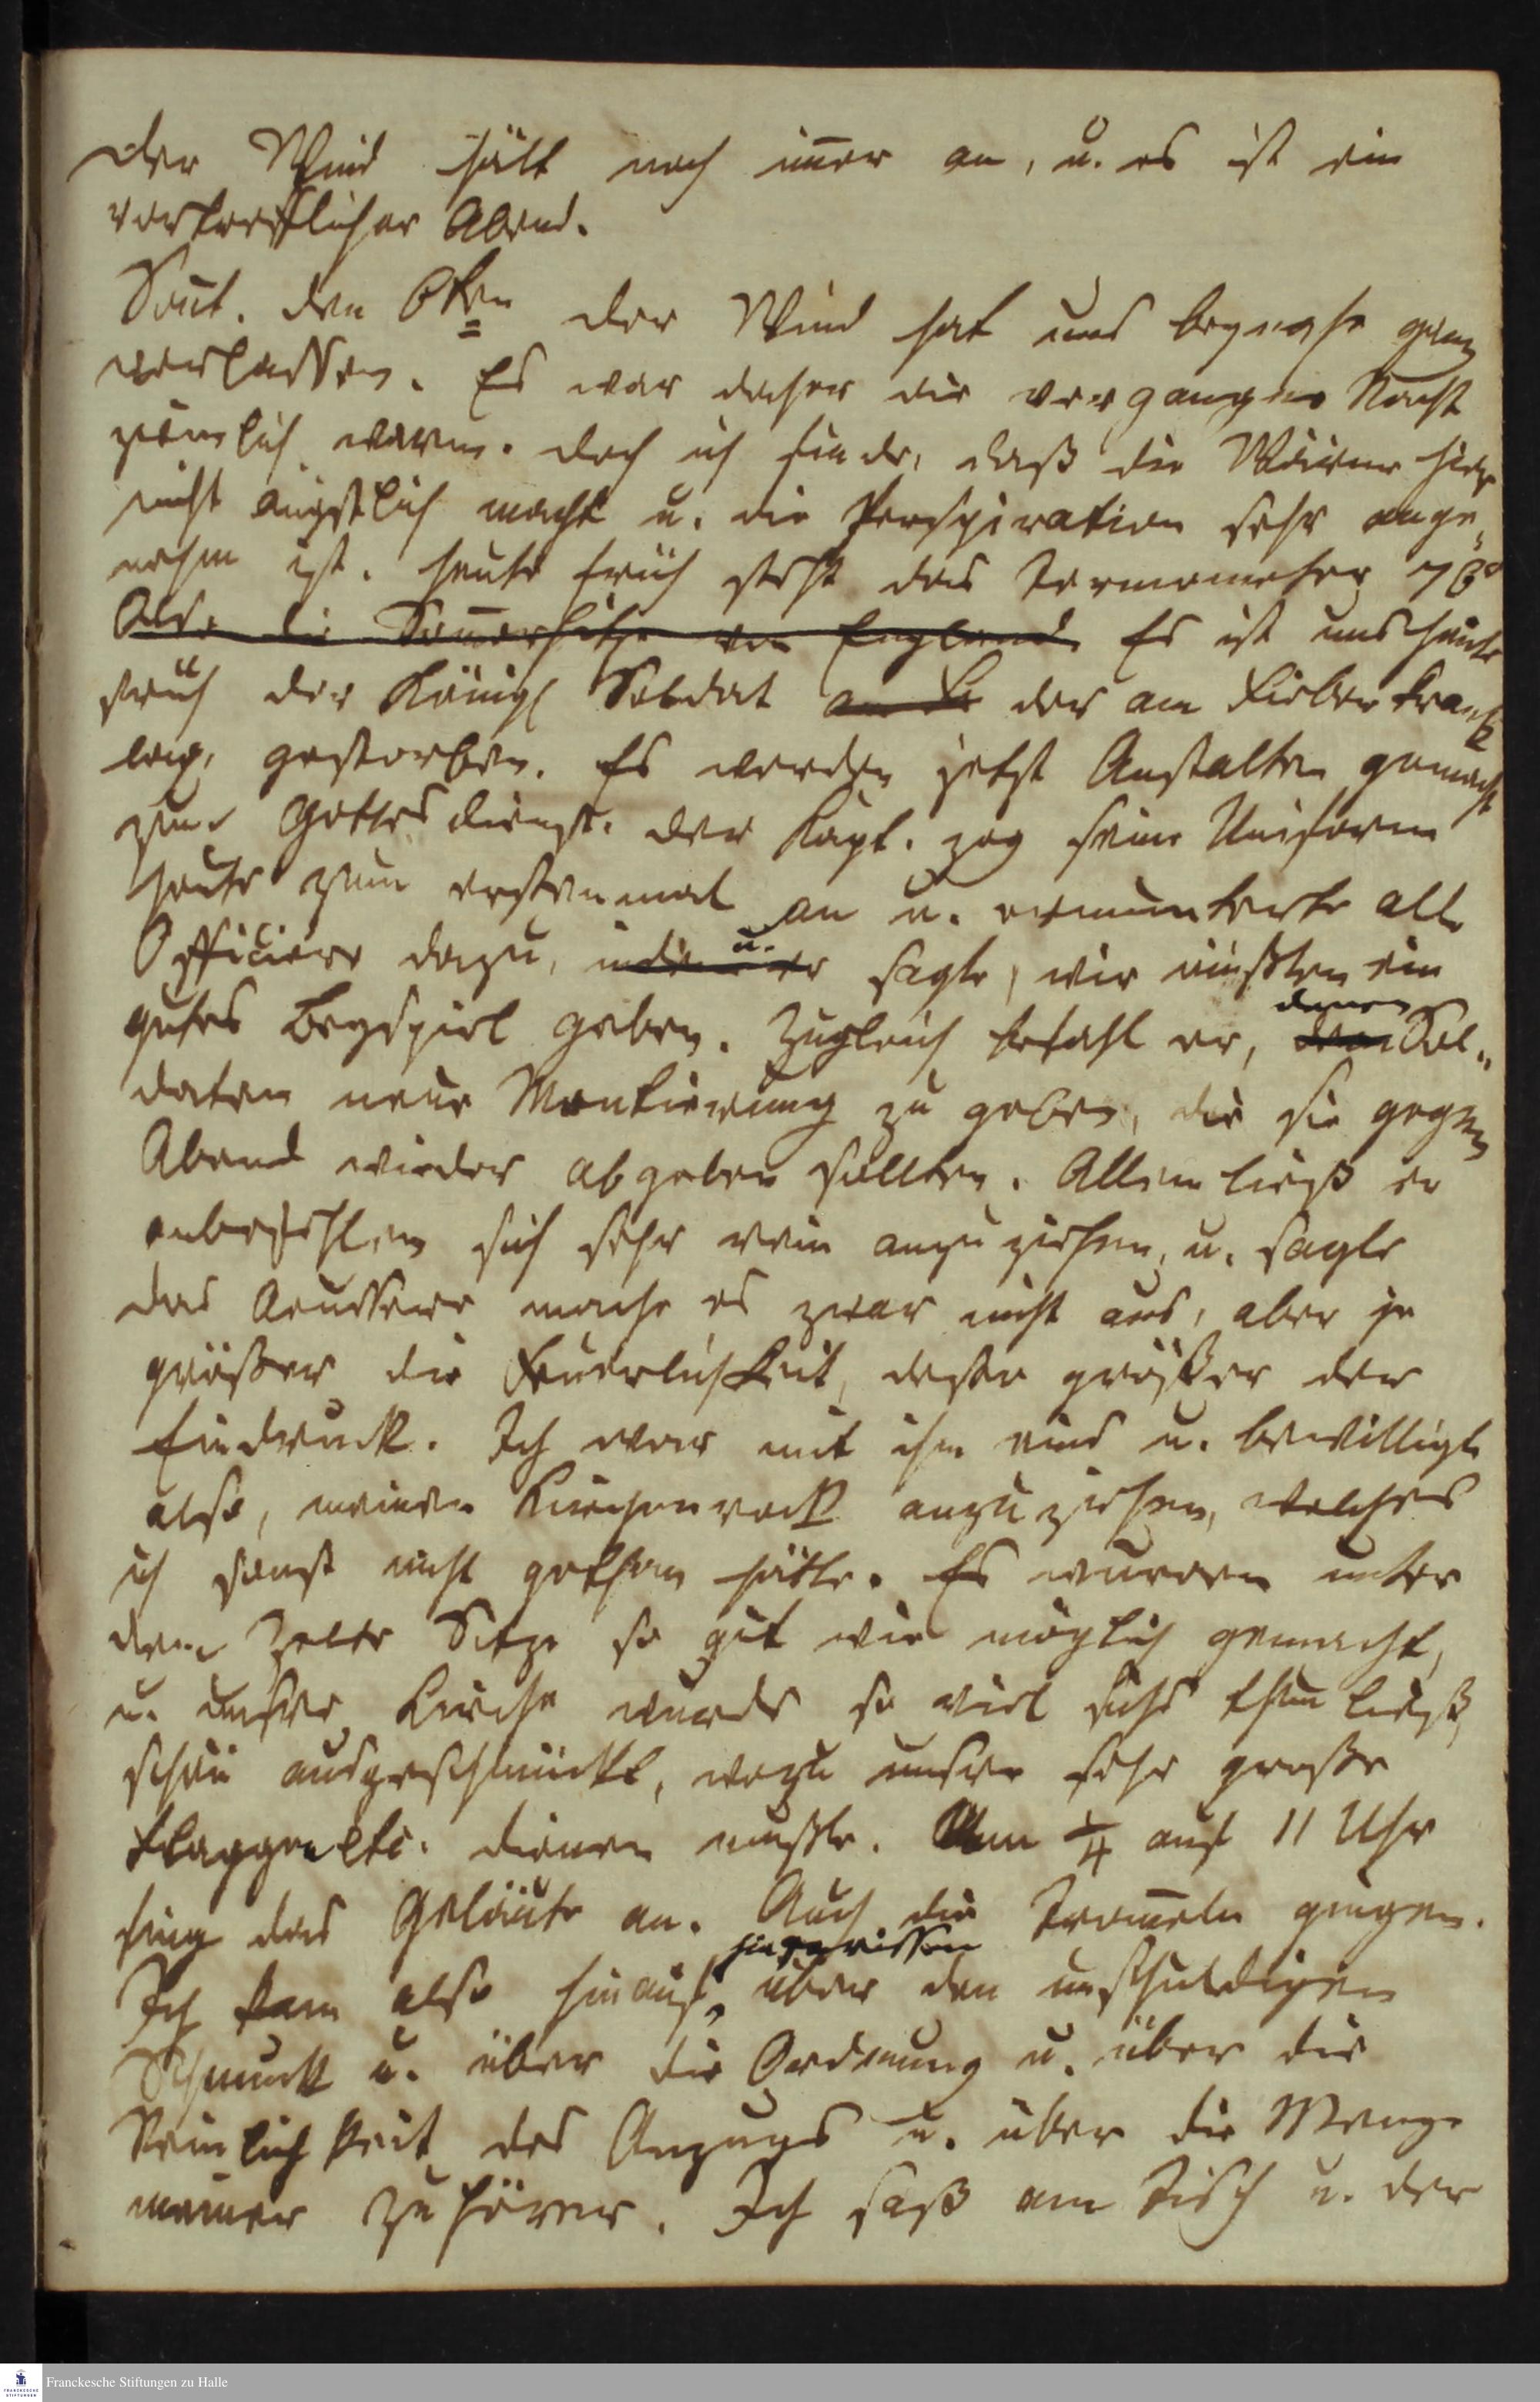 Der Wind hält noch im̄er an, u. es ist ein
vortrefflicher Abend.
Sont. den 6ten Der Wind hat uns beynahe ganz
verlassen. Es war daher die vergangne Nacht
ziemlich warm. Doch ich finde, daß die Wärme hier
nicht ängstlich macht u. die Perspiration sehr ange„
nehm ist. Heute früh steht das Termometer 76°
Also die Som̄erhitze von England. Es ist uns heute
früh der Königl Soldat am Fi der am Fieber krank
lag, gestorben. Es werden jetzt Anstalten gemacht
zum Gottesdienst. Der Kapt. zog seine Uniform
heute zum erstenmal an u. ermunterte alle
Officiere dazu, indem er u. sagte, wir müßten ein
gutes Beyspiel geben. Zugleich befahl er, den denen Sol„
daten neue Montierung zu geben, die sie gegen
Abend wieder abgeben sollten. Allen ließ er
anbefehlen sich sehr rein anzuziehen, u. sagte
das Aeussere mache es zwar nicht aus, aber je
größer die Feierlichkeit, desto größer der
Eindruck. Ich war mit ihm eins u. bewilligte
also, meinen Kirchenrock anzuziehen, welches
ich sonst nicht gethan hätte. Es wurden unter
dem Zelte Sitze so gut wie möglich gemacht,
u. unsere Kirche wurde so viel sichs thun ließ,
schön ausgeschmückt, wozu unsere sehr große
Flaggen etc. dienen mußte. Um 1/4 auf 11 Uhr
fing das Geläute an. Auch die Trom̄eln gingen.
Ich kam also hinauf, hingerissen über den unschuldigen
Schmuck u. über die Ordnung u. über die
Reinlichkeit des Anzugs u. über die Menge
meiner Zuhörer. Ich saß am Tisch u. der
Franckesche Stiftungen zu Halle